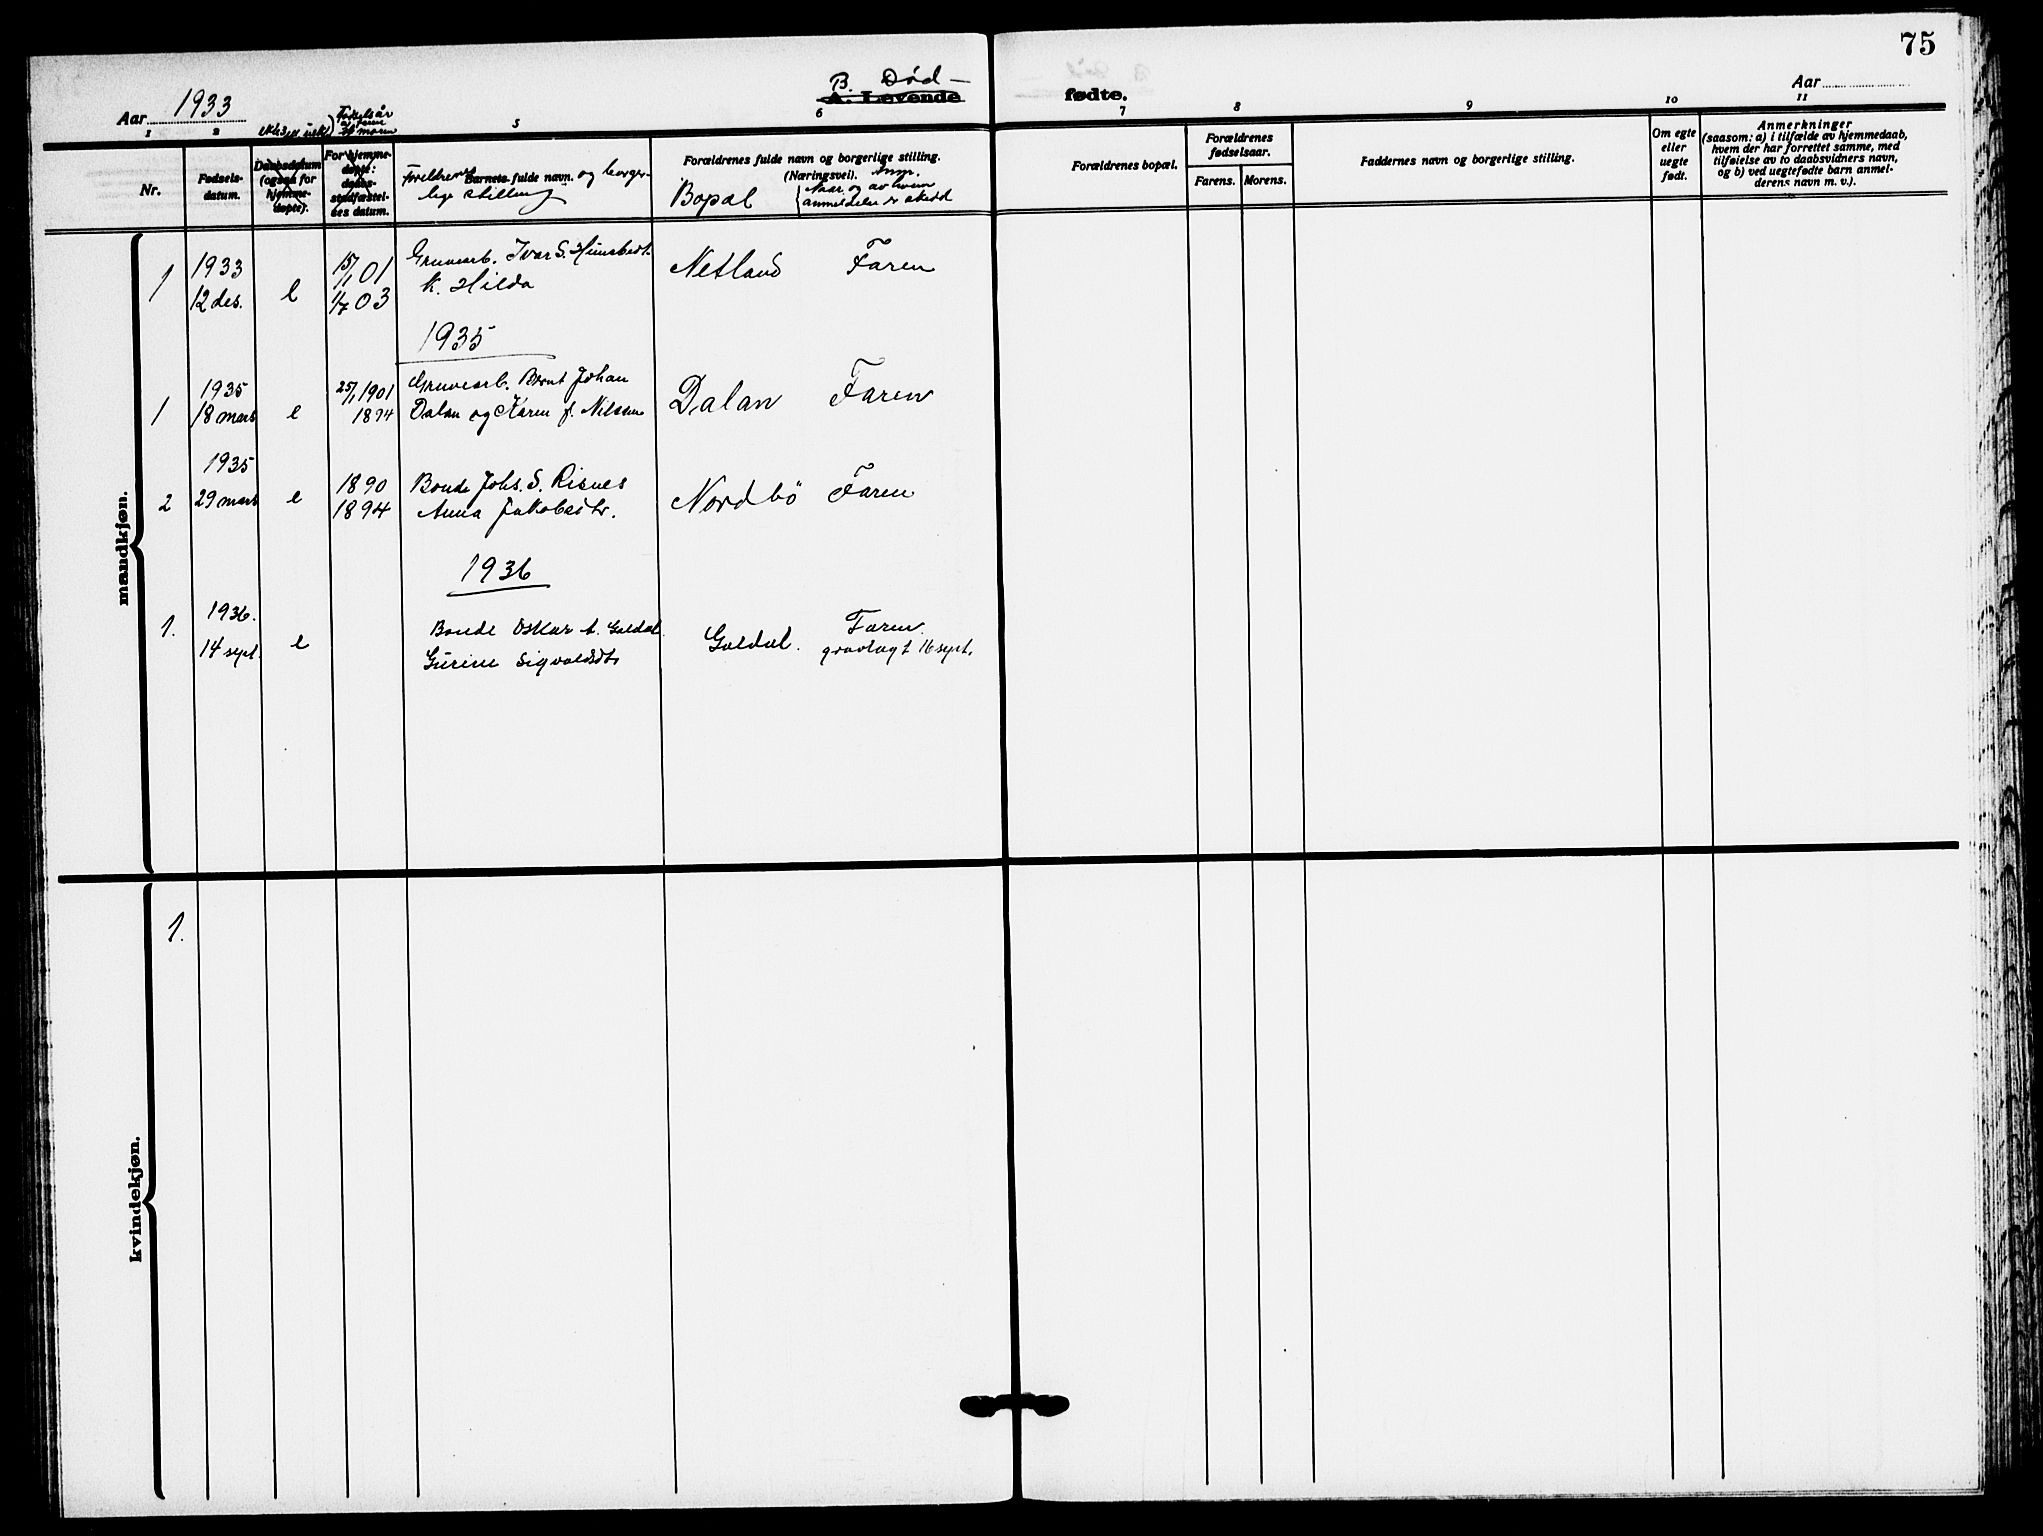 75
B. Død-
Aar 1933
A. Levende
fødte.
Aar
1 2 5 6 7 8 9 10 11
Nr.
Fødsels-
datum.
Daabsdatum
(ogsaa for
hjemme-
døpte).
Fødselsår
For hjemme-
døpte:
daabs-
stadfæstel-
ses datum.
Foreldrenes
Barnets fulde navn. og borger-
lige stilling
Forældrenes fulde navn og borgerlige stilling.
(Næringsvei).
Bopæl
Naar og av hvem
anmeldelse er skedd
Forældrenes bopæl.
Forældrenes
fødselsaar.
Farens. Morens.
Faddernes navn og borgerlige stilling.
Om egte
eller
uegte
født.
Anmerkninger
(saasom: a) i tilfælde av hjemmedaab,
hvem der har forrettet samme, med
tilføielse av to daabsvidners navn,
og b) ved uegtefødte barn anmel-
derens navn m. v.).
mandkjøn.
1 1933 15/1 01 Gruvearb. Ivar S. Netland Faren
12 des. e 1/7 03 K. Hilda
1935
1935 25/1 1901 Gruvearb. Bernt Johan
1 18 mars e 1894 Dalan og Karen f. Nilssen Dalan Faren
1935
2 29 mars e 1890 Bonde Johs. S. Risnes Nordbö Faren
1894 Anna Jakobsdtr.
1936
1. 1936. Bonde Oskar A. Guldal. Guldal. Faren.
14 sept. e Gurine Sigvaldsdtr gravlagt 16 sept.
kvindekjøn.
1.